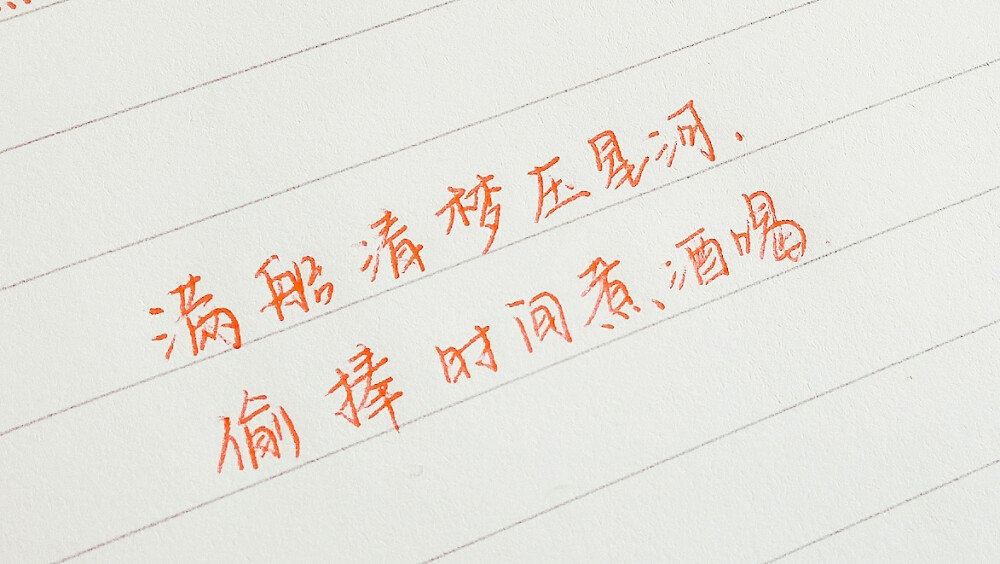 满船清梦压星河.
偷捧时间煮酒喝.